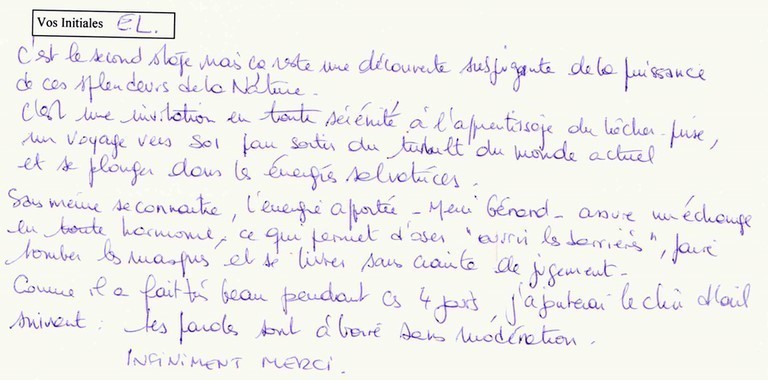 Vos Initiales EL.
C'est le second stage mais ça reste une découverte suffocante de la puissance
de ces splendeurs de la Nature.
C'est une invitation en toute sérénité à l'apprentissage du lâcher-prise,
un voyage vers soi pour sortir du tumult du monde actuel
et se plonger dans les énergies salvatrices.
Sans même se connaître, l'énergie apportée - Merci Gérard - assure un échange
en toute harmonie, ce qui permet d'oser "ouvrir les barrières", faire
tomber les masques et se livrer sans crainte de jugement -
Comme il a fait très beau pendant ces 4 jours, j'ajouterai le clin d'œil
suivant : tes paroles sont à boire sans modération.
INFINIMENT MERCI.